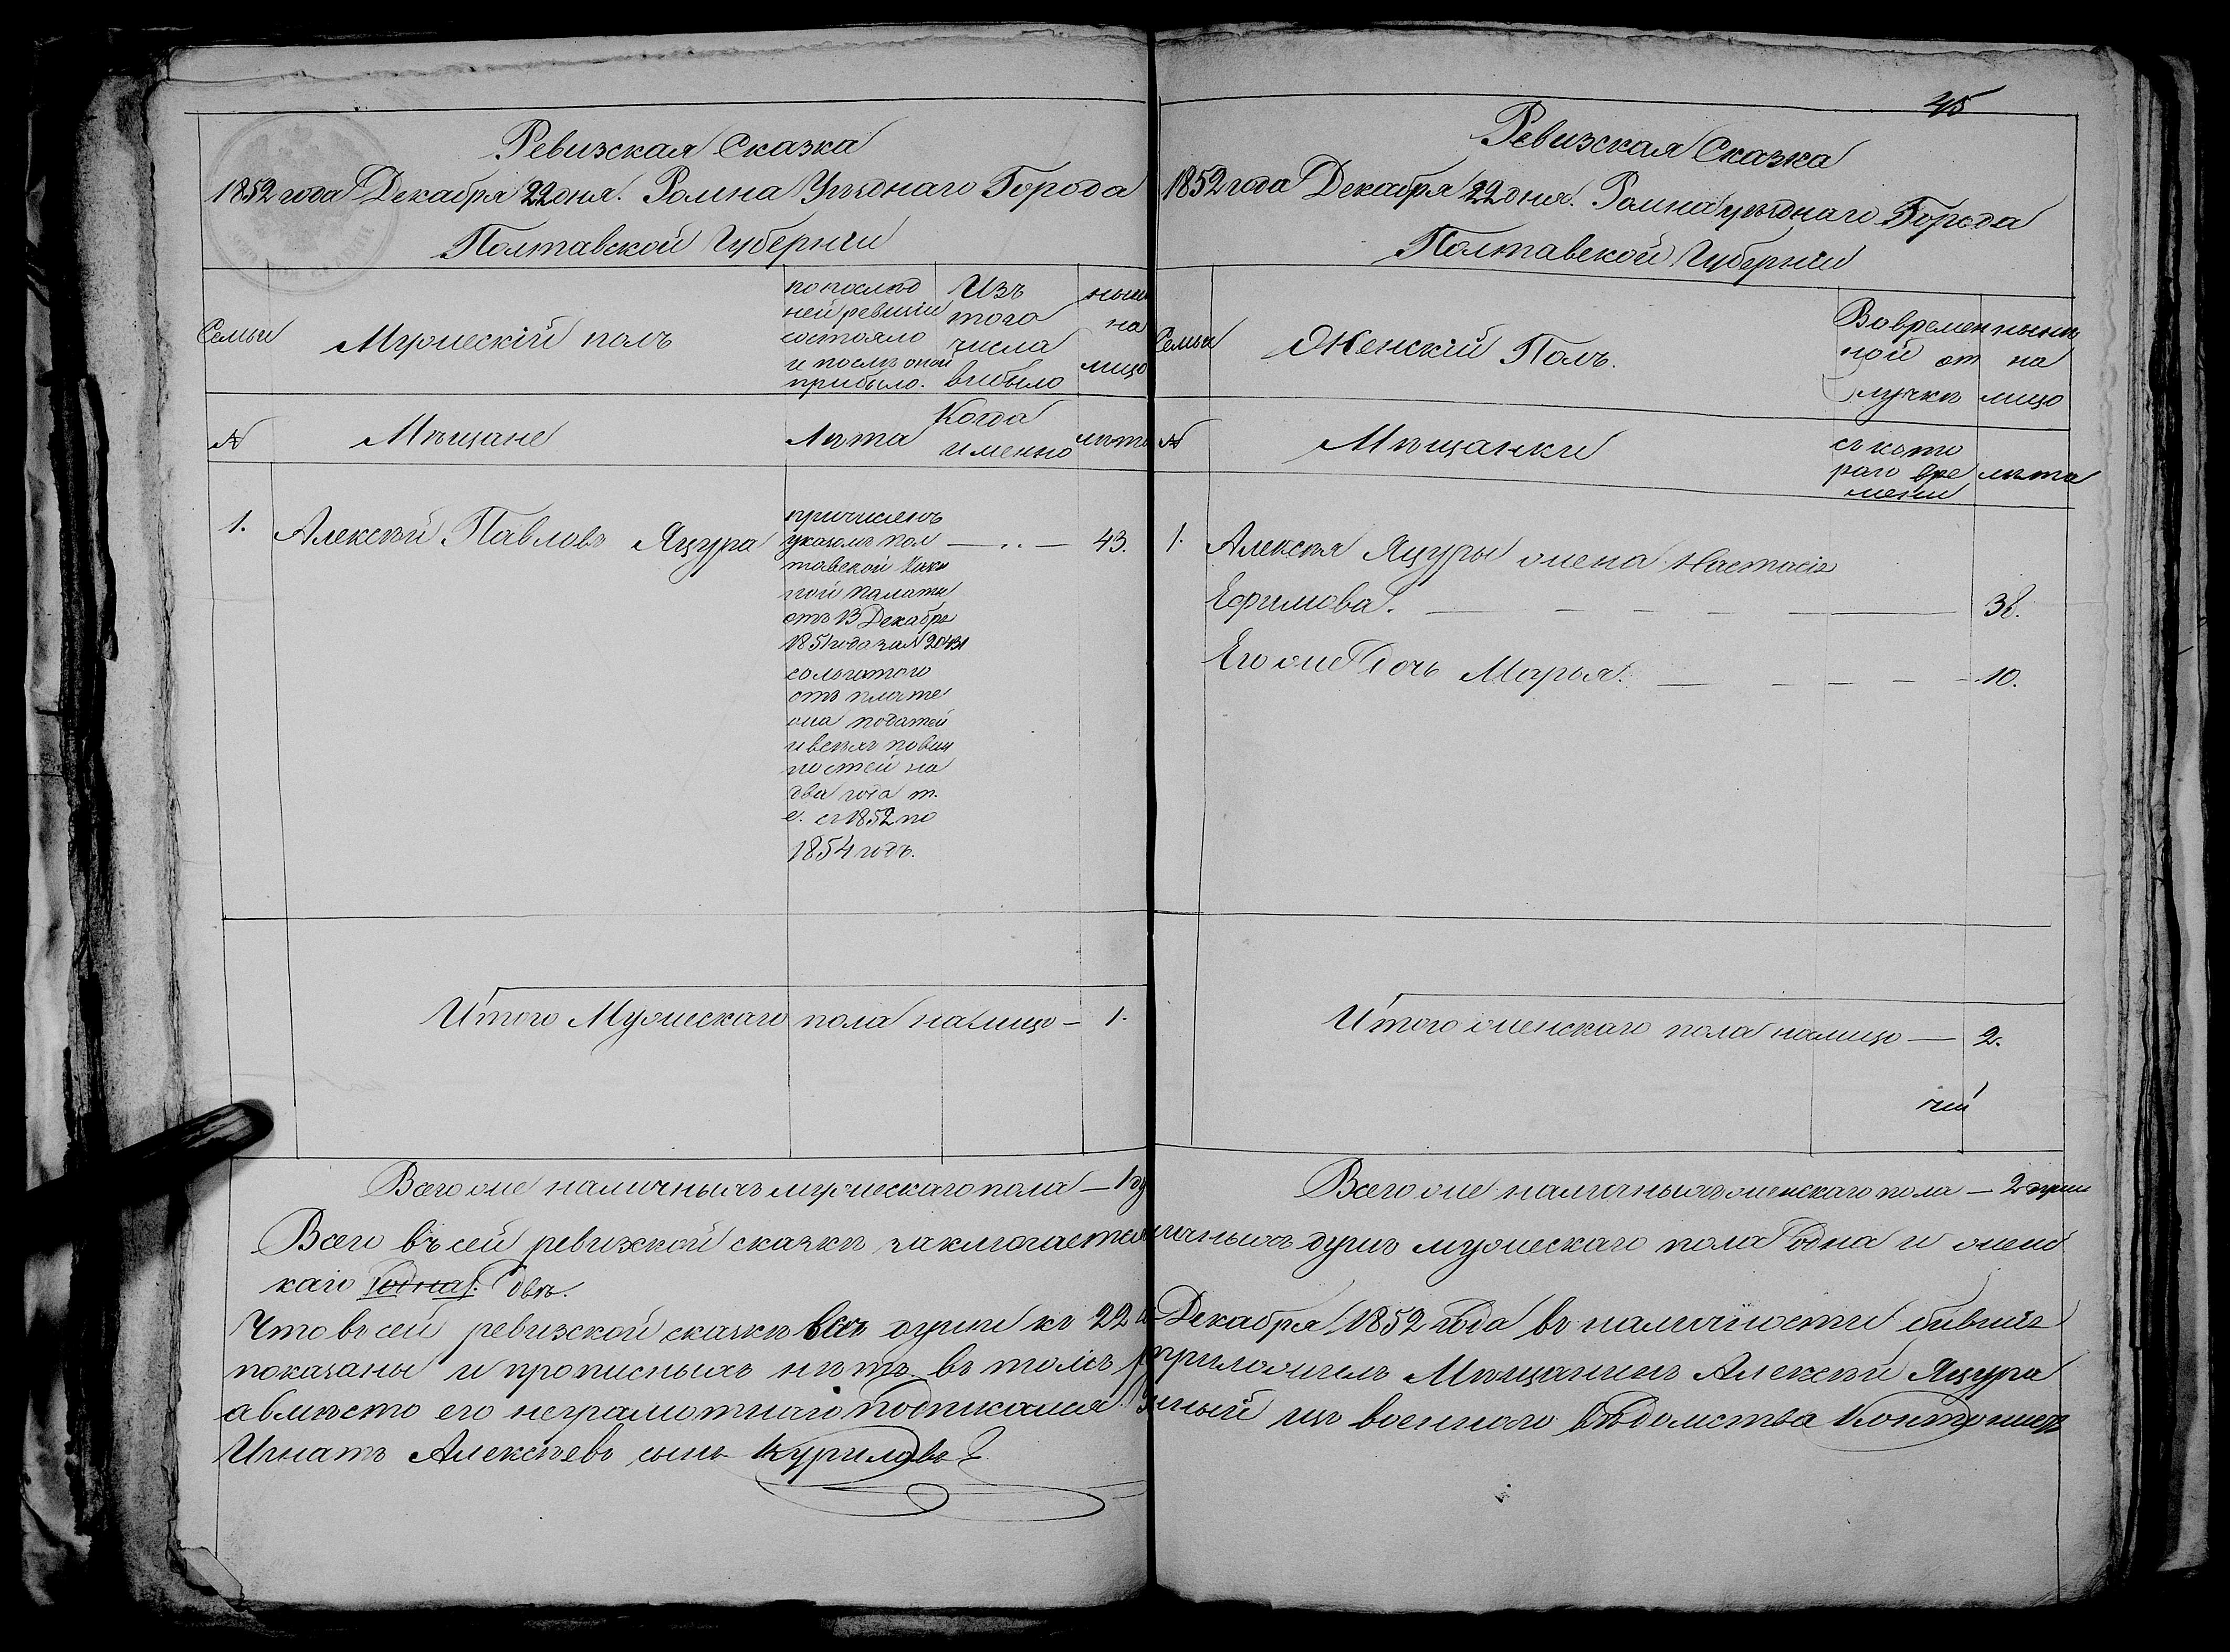 Ревизская Сказка
1852 года Декабря 22 дня. Ромна Уѣзднаго Города
Полтавской Губерніи
Семьи
Мужескій полъ
по послѣд
ней ревизіи
состояло
и послѣ оной
прибыло.
Изъ
того
числа
выбыло
нынѣ
на
лицо
№
Мѣщане
Лѣта
Когда
именно
лѣта
1. Алексѣй Павловъ Яцура
причисленъ
указомъ Пол
тавской Казен
ной Палаты
отъ 13 Декабря
1851 года за № 20431
со льготою
отъ плате
жа податей
и всѣхъ повин
ностей на
два года т.
е. съ 1852 по
1854 годъ.
43.
Итого Мужескаго пола на лицо — 1.
Всего же наличныхъ мужескаго пола — 1
45
Ревизская Сказка
1852 года Декабря 22 дня. Ромна уѣзднаго Города
Полтавской Губерніи
Семьи
Женскій Полъ.
Во времен
ной от
лучкѣ
нынѣ
на
лицо
№
Мѣщанки
съ кото
раго вре
мени
лѣта
1. Алексѣя Яцуры жена Настасія
Ефимова. 38.
Его же дочь Марья. 10.
Итого женскаго пола на лицо — 2.
Всего же наличныхъ женскаго пола — 2 души
Всего въ сей ревизской сказкѣ заключается личныхъ душъ мужескаго пола одна и женс
каго одна. двѣ.
Что въ сей ревизской сказкѣ всѣ души къ 22 Декабря 1852 года въ наличности бывшіе
показаны и прописныхъ нѣтъ въ томъ приложилъ Мѣщанинъ Алексѣй Яцура
а вмѣсто его неграмотнаго подписался изъ военнаго вѣдомства Кантонистъ
Игнатъ Алексѣевъ сынъ Куриловъ